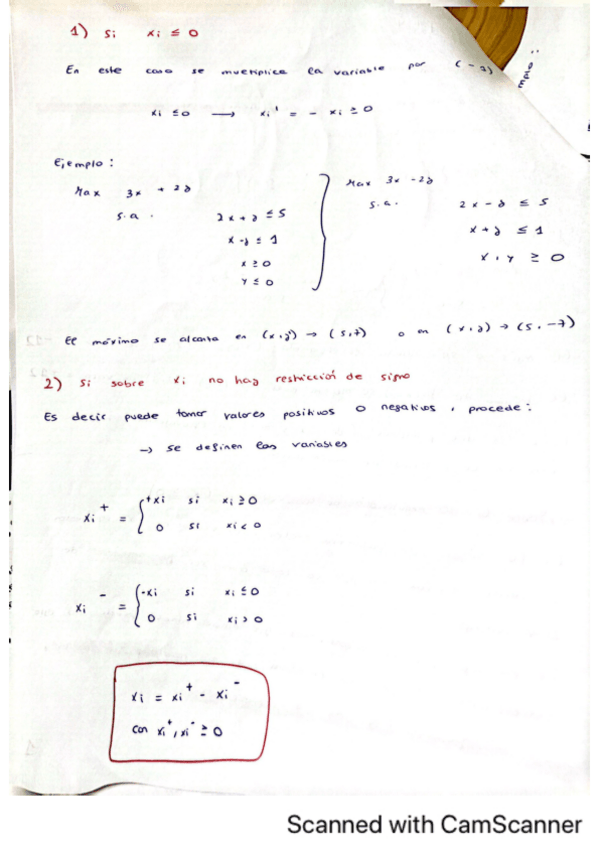 1) Si xi ≤ 0
En este caso se multiplica la variable por (-1)
xi ≤ 0 → xi' = - xi ≥ 0
Ejemplo:
Max 3x + 2y
s.a. 2x + y ≤ 5
x - y ≤ 1
x ≥ 0
y ≤ 0
Max 3x - 2y
s.a. 2x - y ≤ 5
x + y ≤ 1
x, y ≥ 0
El máximo se alcanza en (x,y) → (5,7) o en (x,y) → (5,-7)
2) Si sobre xi no hay restricción de signo
Es decir puede tomar valores positivos o negativos, procede:
→ se definen las variables
xi⁺ = { +xi si xi ≥ 0
0 si xi < 0
xi⁻ = { -xi si xi ≤ 0
0 si xi > 0
xi = xi⁺ - xi⁻
con xi⁺, xi⁻ ≥ 0
Scanned with CamScanner